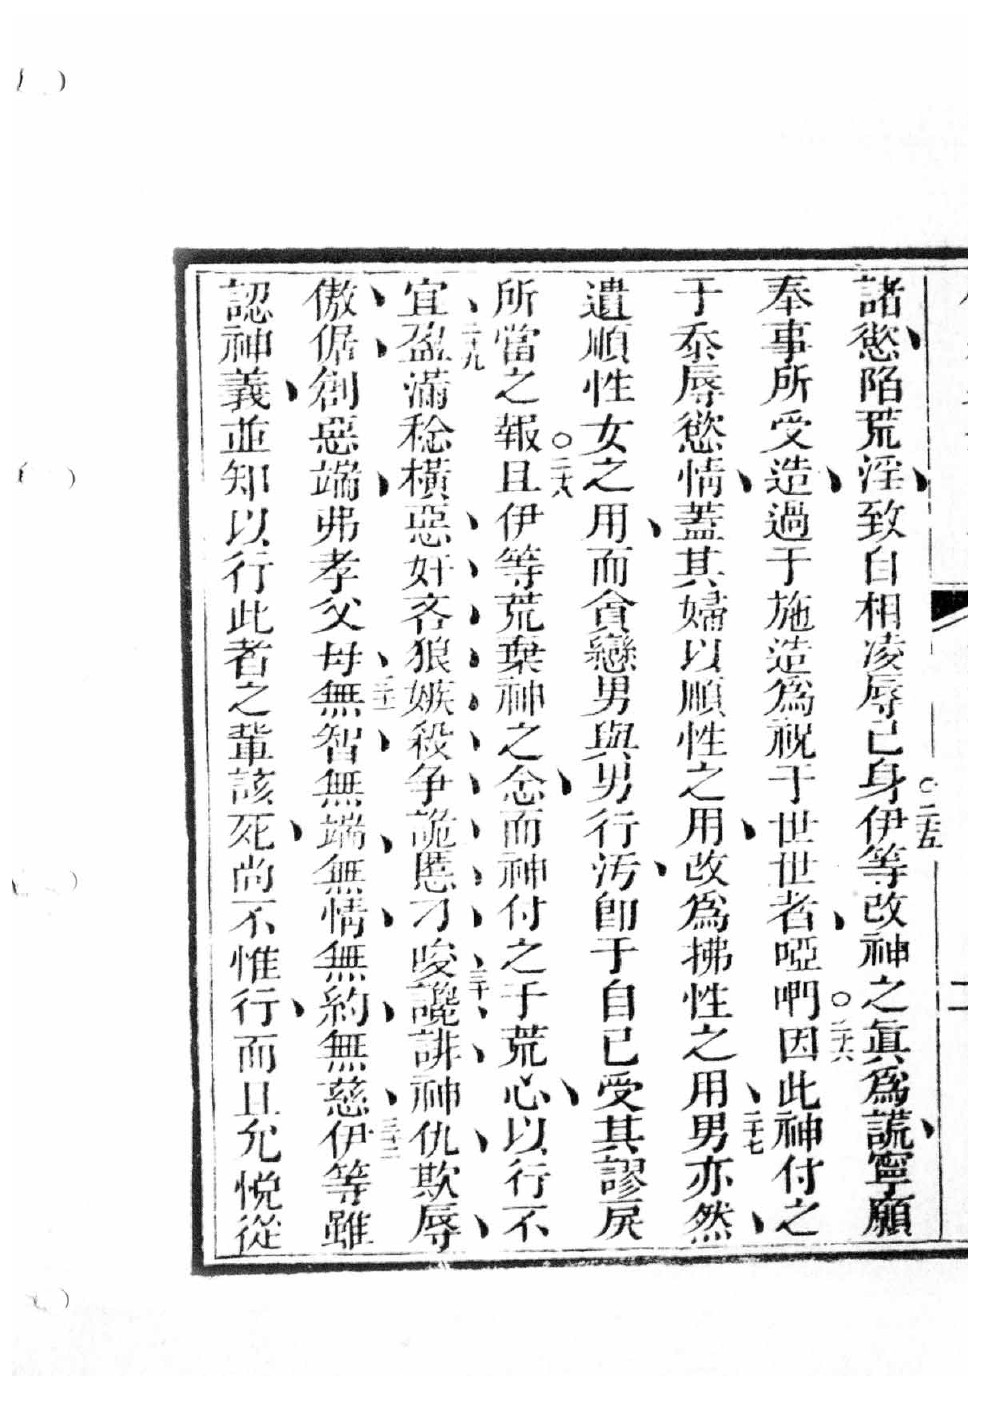 諸慾陷荒淫、致自相凌辱己身○二十五伊等改神之眞爲謊、寧願
奉事所受造、過于施造爲祝于世世者、啞啊○二十六因此神付之
于忝辱慾情、蓋其婦以順性之用、改爲拂性之用、二十七男亦然、
遺順性女之用、而貪戀男與男行汚、卽于自己受其謬戾
所當之報○二十八且伊等荒棄神之念、而神付之于荒心、以行不
宜、二十九盈滿稔橫惡、奸、吝、狼、嫉、殺、争、詭、慝、刁唆、三十讒、誹、神仇、欺辱、
傲、倨、創惡端、弗孝父母、三十一無智、無端、無情、無約、無慈、三十二伊等雖
認神義、並知以行此者之輩該死、尚不惟行、而且允悅從